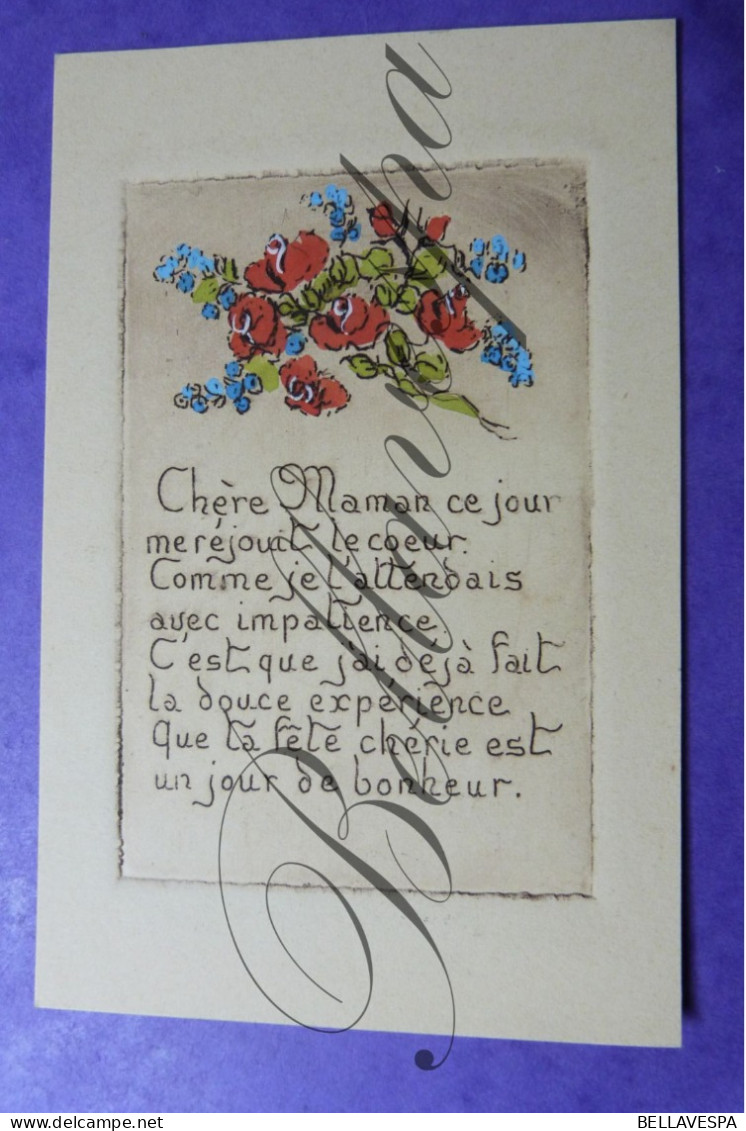 Chère Maman ce jour
me réjouit le coeur.
Comme je t'attendais
avec impatience.
C'est que j'ai dejà fait
la douce experience
que ta fête chérie est
un jour de bonheur.
Bellavespa
BELLAVESPA